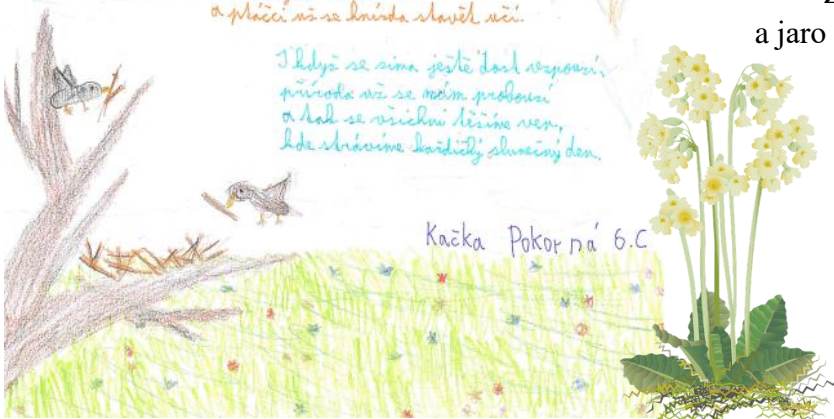 a ptáčci už se hnízda stavět učí.
I když se zima ještě dost vzpouzí,
příroda už se nám probouzí
a tak se všichni těšíme ven,
kde strávíme každičký slunečný den.
Kačka Pokorná 6.C
a jaro